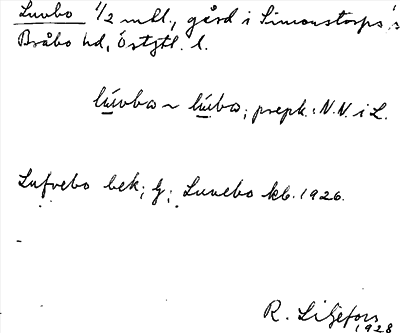 Luvbo 1/2 mtl., gård i Simonstorps s
Bråbo hd, Östgtl. l.
lúvba ~ lúba; prepk. N.N. i L.
Lufvebo bek; Luvebo kb. 1926.
R. Liljefors
1928